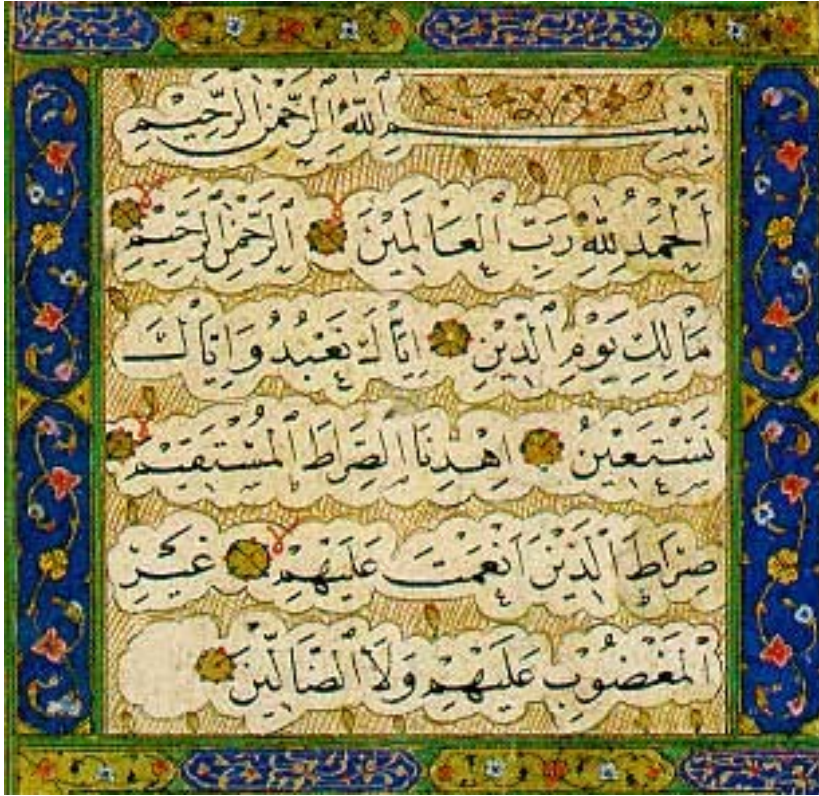 بِسْمِ ٱللَّهِ ٱلرَّحْمٰنِ ٱلرَّحِيمِ
اَلْحَمْدُ لِلَّهِ رَبِّ ٱلْعَالَمِينَ ٱلرَّحْمٰنِ ٱلرَّحِيمِ
مَالِكِ يَوْمِ ٱلدِّينِ اِيَّاكَ نَعْبُدُ وَاِيَّاكَ
نَسْتَعِينُ اِهْدِنَا ٱلصِّرَاطَ ٱلْمُسْتَقِيمَ
صِرَاطَ ٱلَّذِينَ اَنْعَمْتَ عَلَيْهِمْ غَيْرِ
ٱلْمَغْضُوبِ عَلَيْهِمْ وَلَا ٱلضَّالِّينَ